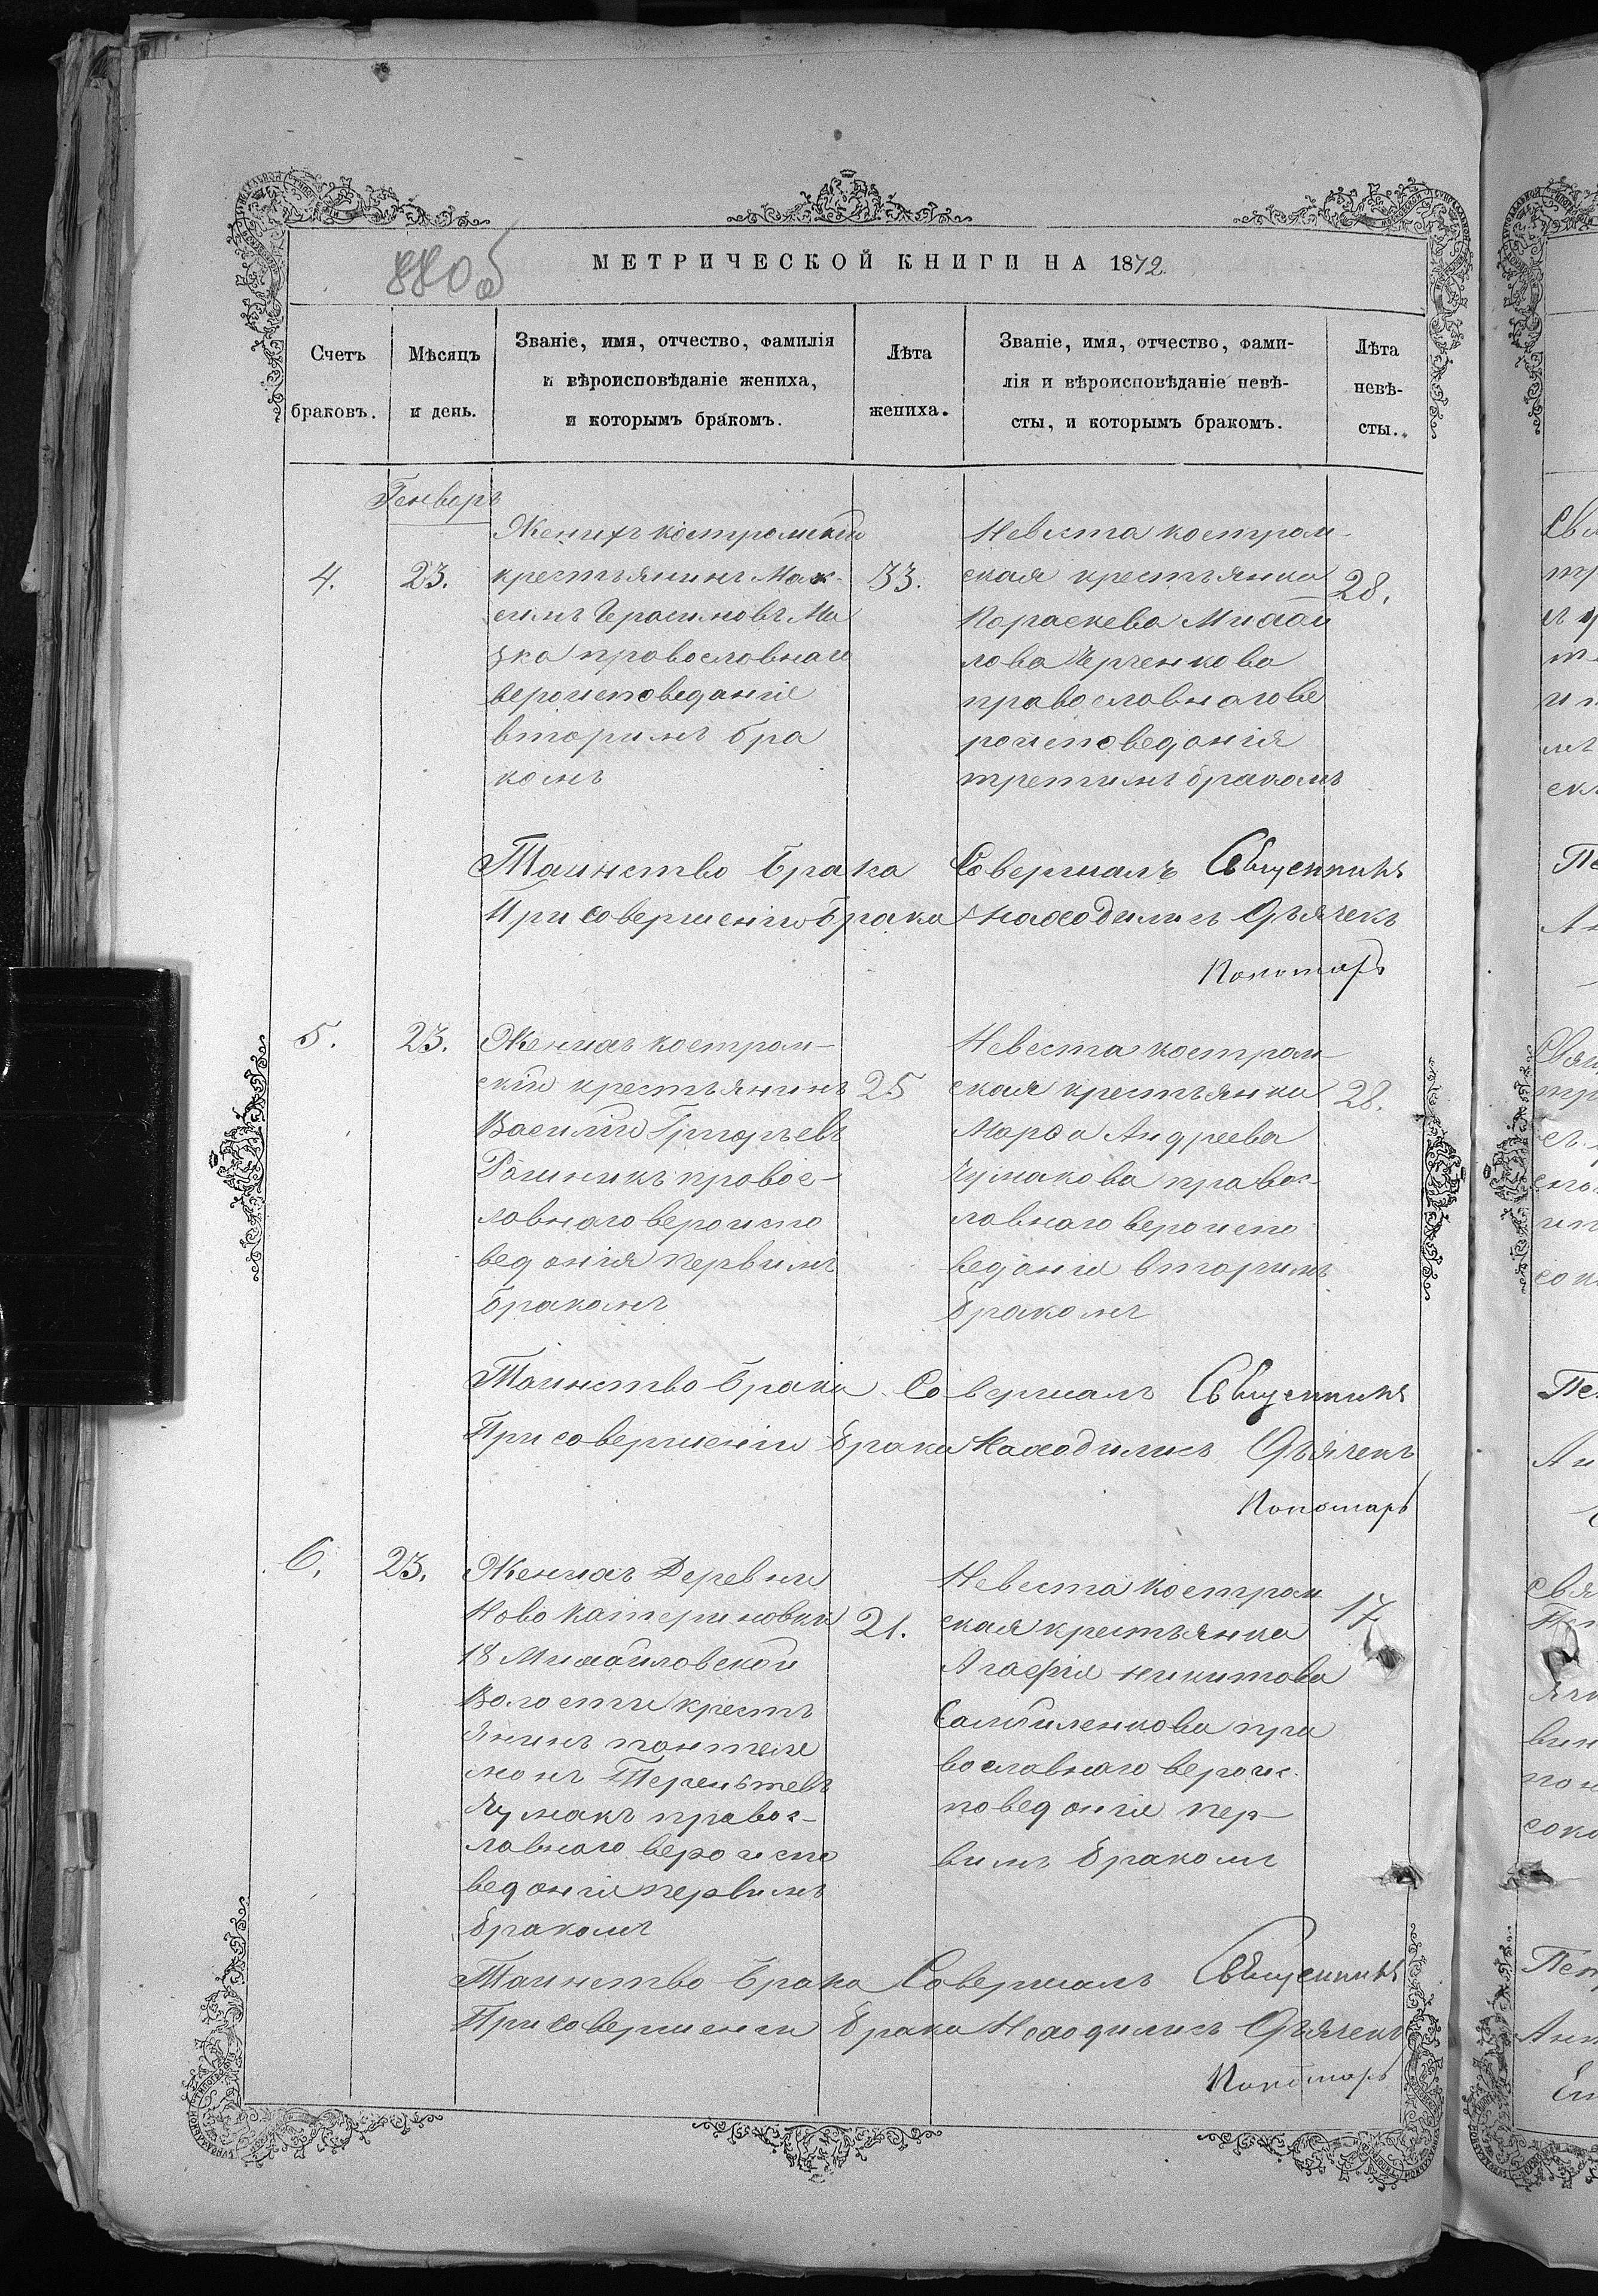 880б
МЕТРИЧЕСКОЙ КНИГИ НА 1872
Счетъ браковъ.
Мѣсяцъ и день.
Званіе, имя, отчество, фамилія
и вѣроисповѣданіе жениха,
и которымъ бракомъ.
Лѣта жениха.
Званіе, имя, отчество, фами-
лія и вѣроисповѣданіе невѣ-
сты, и которымъ бракомъ.
Лѣта невѣ-
сты.
Генверь
4.
23.
Женихъ костромскій
крестьянинъ Мак-
симъ Герасимовъ
зка православнаго
вероисповеданіе
вторимъ бра
комъ
33.
Невеста костром-
ская крестьянка
Параскева Михаи
лова Черченкова
православнаго ве
роисповеданія
третимъ бракомъ
28.
Таинство брака Совершалъ Священникъ
При совершеніи брака находились Дьячекъ
Пономарь
5.
23.
Женихъ костром-
скій крестьянинъ
Василій Григорьевъ
правос-
лавнаго вероиспо
веданія первимъ
бракомъ
25
Невеста костром-
ская крестьянка
Марѳа Андреева
Чумакова правос-
лавнаго вероиспо
веданія вторимъ
бракомъ
28.
Таинство брака Совершалъ Священникъ
При совершеніи брака Находились Дьячекъ
Пономарь
6.
23.
Женихъ Деревни
Ново Катериновки
18 Михайловской
Волости кресть
янинъ пантеле
монъ Терентьевъ
Чумакъ правос-
лавнаго вероиспо
веданія первимъ
бракомъ
21.
Невеста костром
ская крестьянка
Агафія никитова
Самойленкова пра
вославнаго вероис-
поведанія пер-
вимъ бракомъ
17
Таинство брака Совершалъ Священникъ
При совершеніи брака Находились Дьячекъ
Пономарь